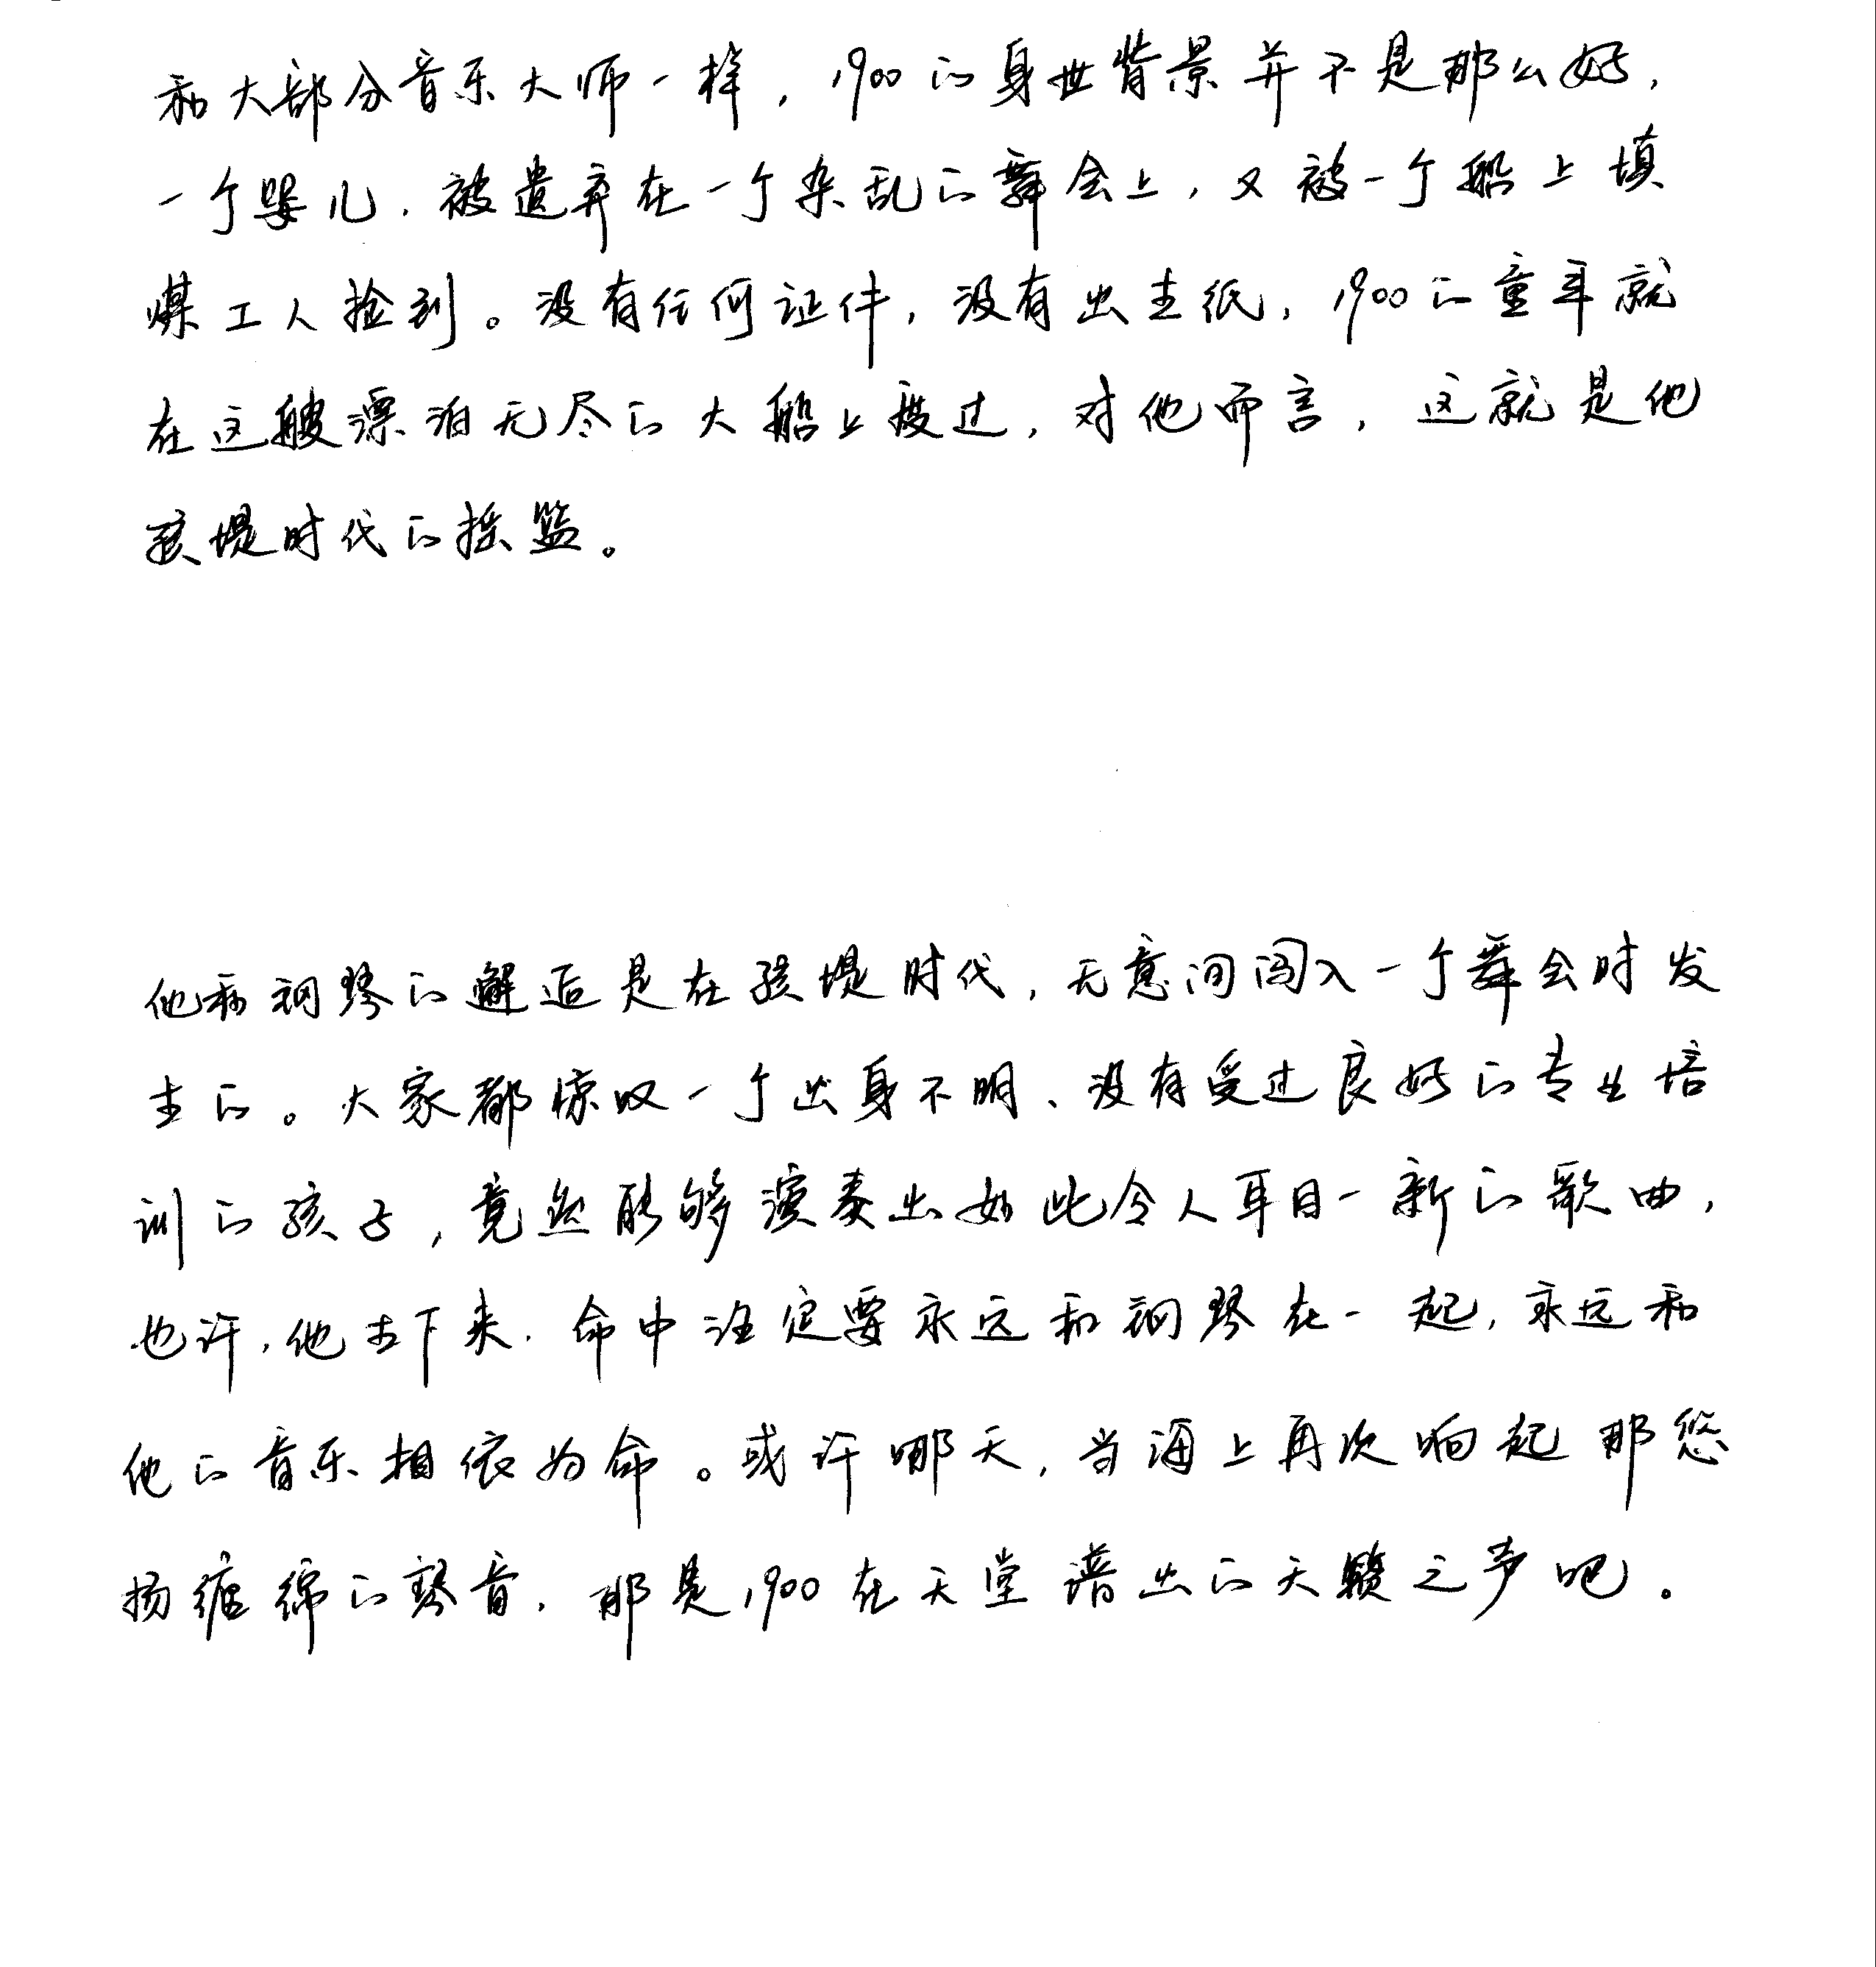 和大部分音乐大师一样，1900的身世背景并不是那么好，
一个婴儿，被遗弃在一个杂乱的舞会上，又被一个船上填
煤工人捡到。没有任何证件，没有出生纸，1900的童年就
在这艘漂泊无尽的大船上度过，对他而言，这就是他
孩堤时代的摇篮。
他和钢琴的邂逅是在孩堤时代，无意间闯入一个舞会时发
生的。大家都惊叹一个出身不明、没有受过良好的专业培
训的孩子，竟然能够演奏出如此令人耳目一新的歌曲，
也许，他生下来，命中注定要永远和钢琴在一起，永远和
他的音乐相依为命。或许哪天，当海上再次响起那悠
扬缠绵的琴音，那是1900在天堂谱出的天籁之声吧。